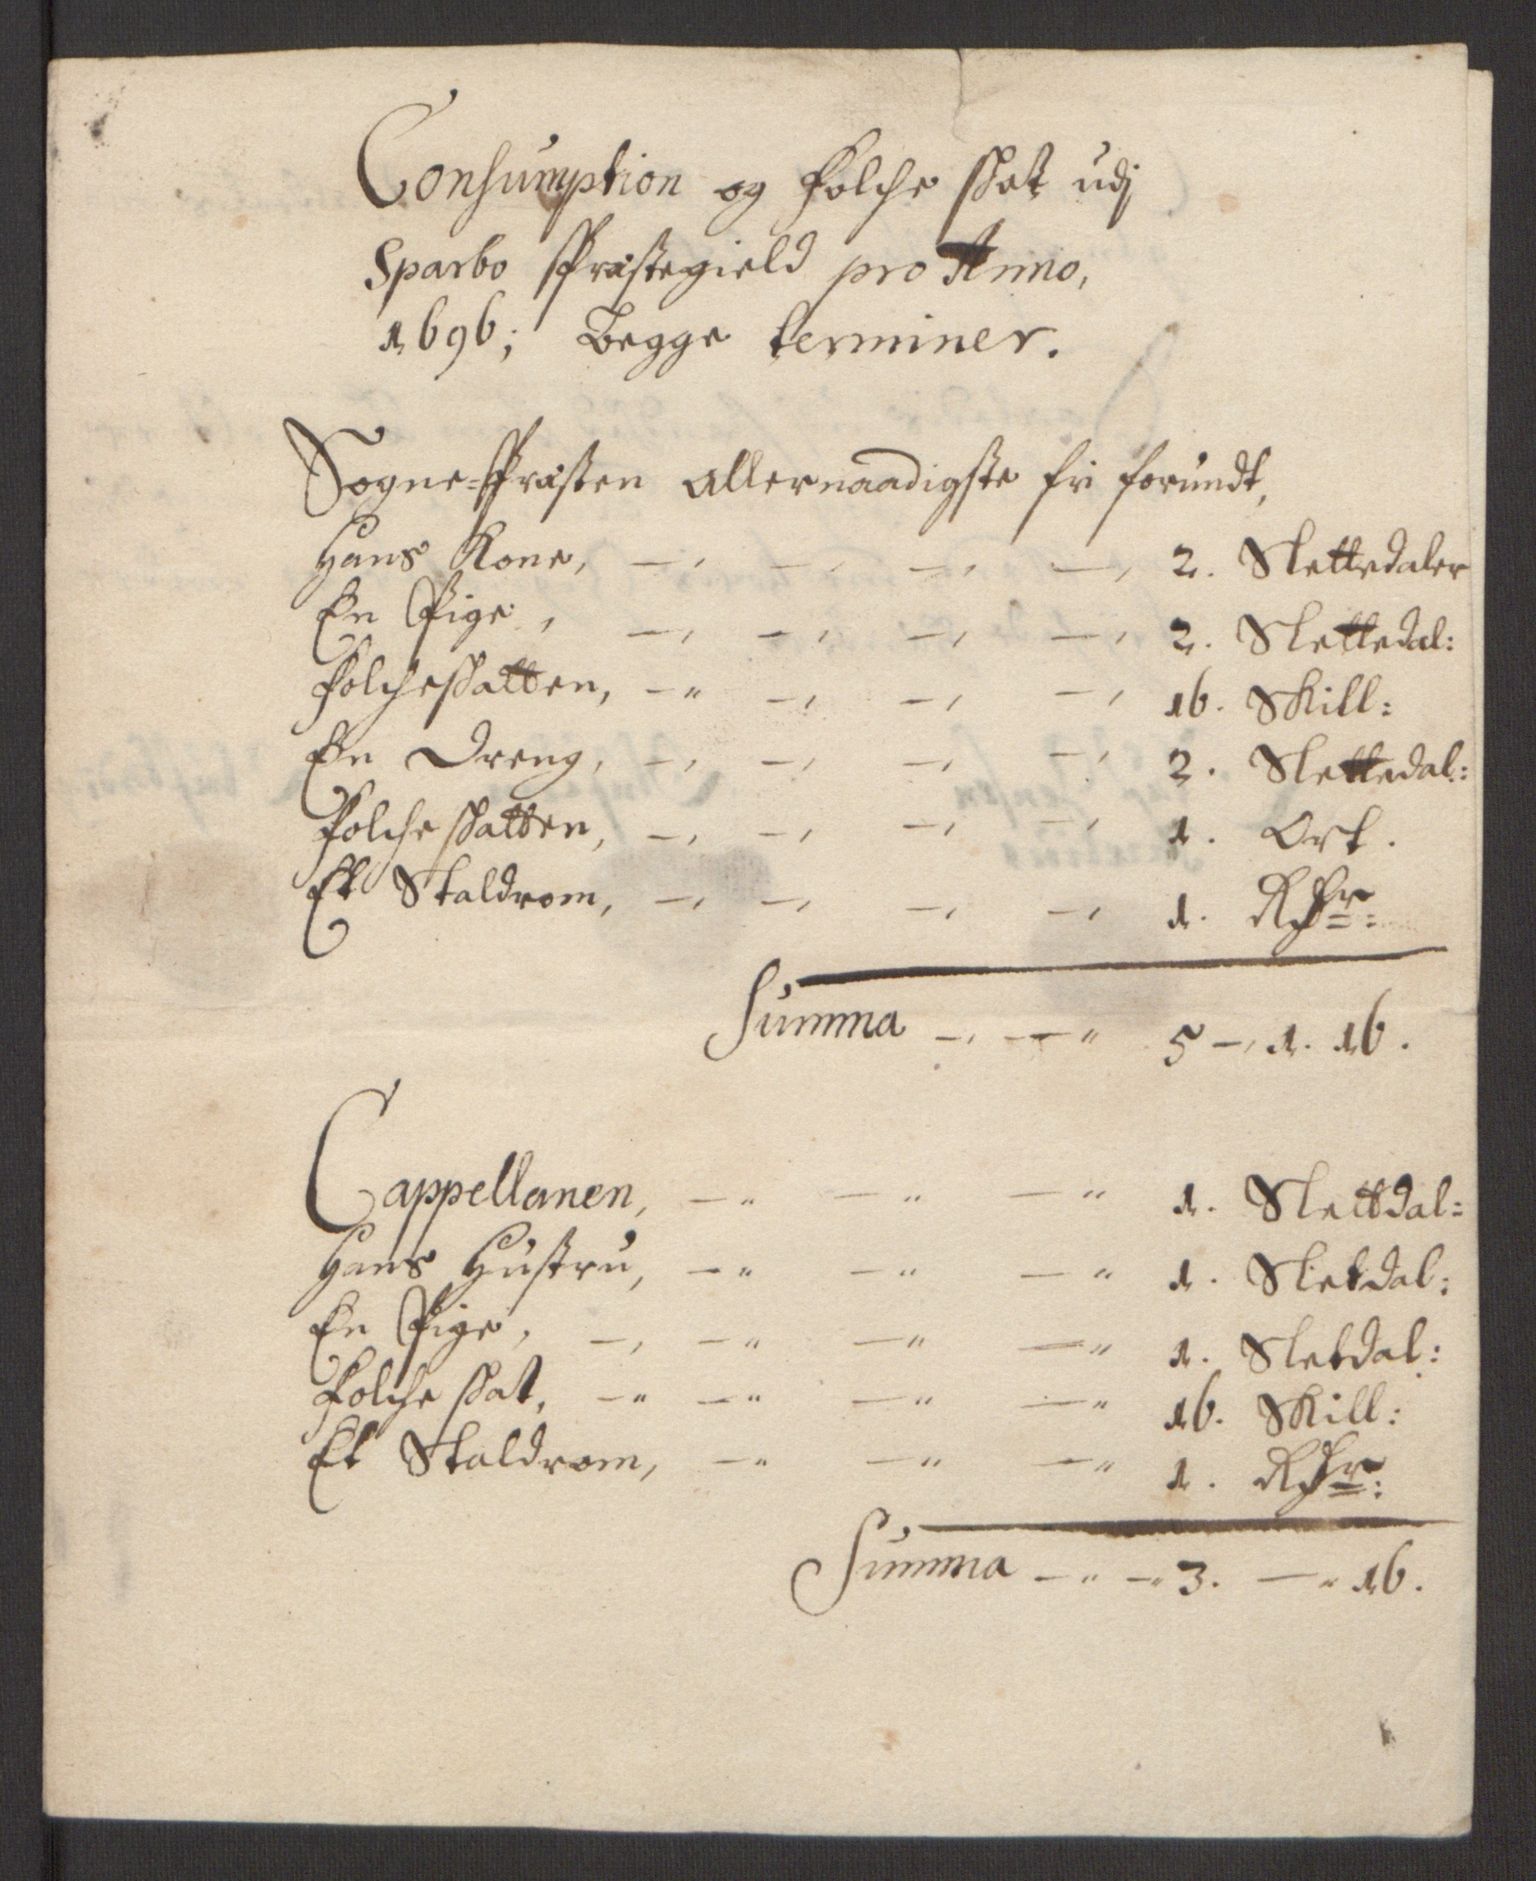 Consumption og folche skat udj
Sparbo Præstegield pro Anno,
1696; Begge terminer.
Sogne-Præsten allernaadigste fri forundt,
Hans Kone, 2. Slettedaler
En Pige, 2. Slettedal:
folcheskatten, 16. Skill:
En Dreng, 2. Slettedal:
folche skatten, 1. Ort.
Et Staldrom, 1. Rdr:
Summa 5 - 1. 16.
Cappellanen, 1. Slettdal:
Hans Hustru, 1. Sletdal:
En Pige, 1. Sletdal:
folche skat, 16. Skill:
Et Staldrom, 1. Rdr:
Summa 3. - 16.